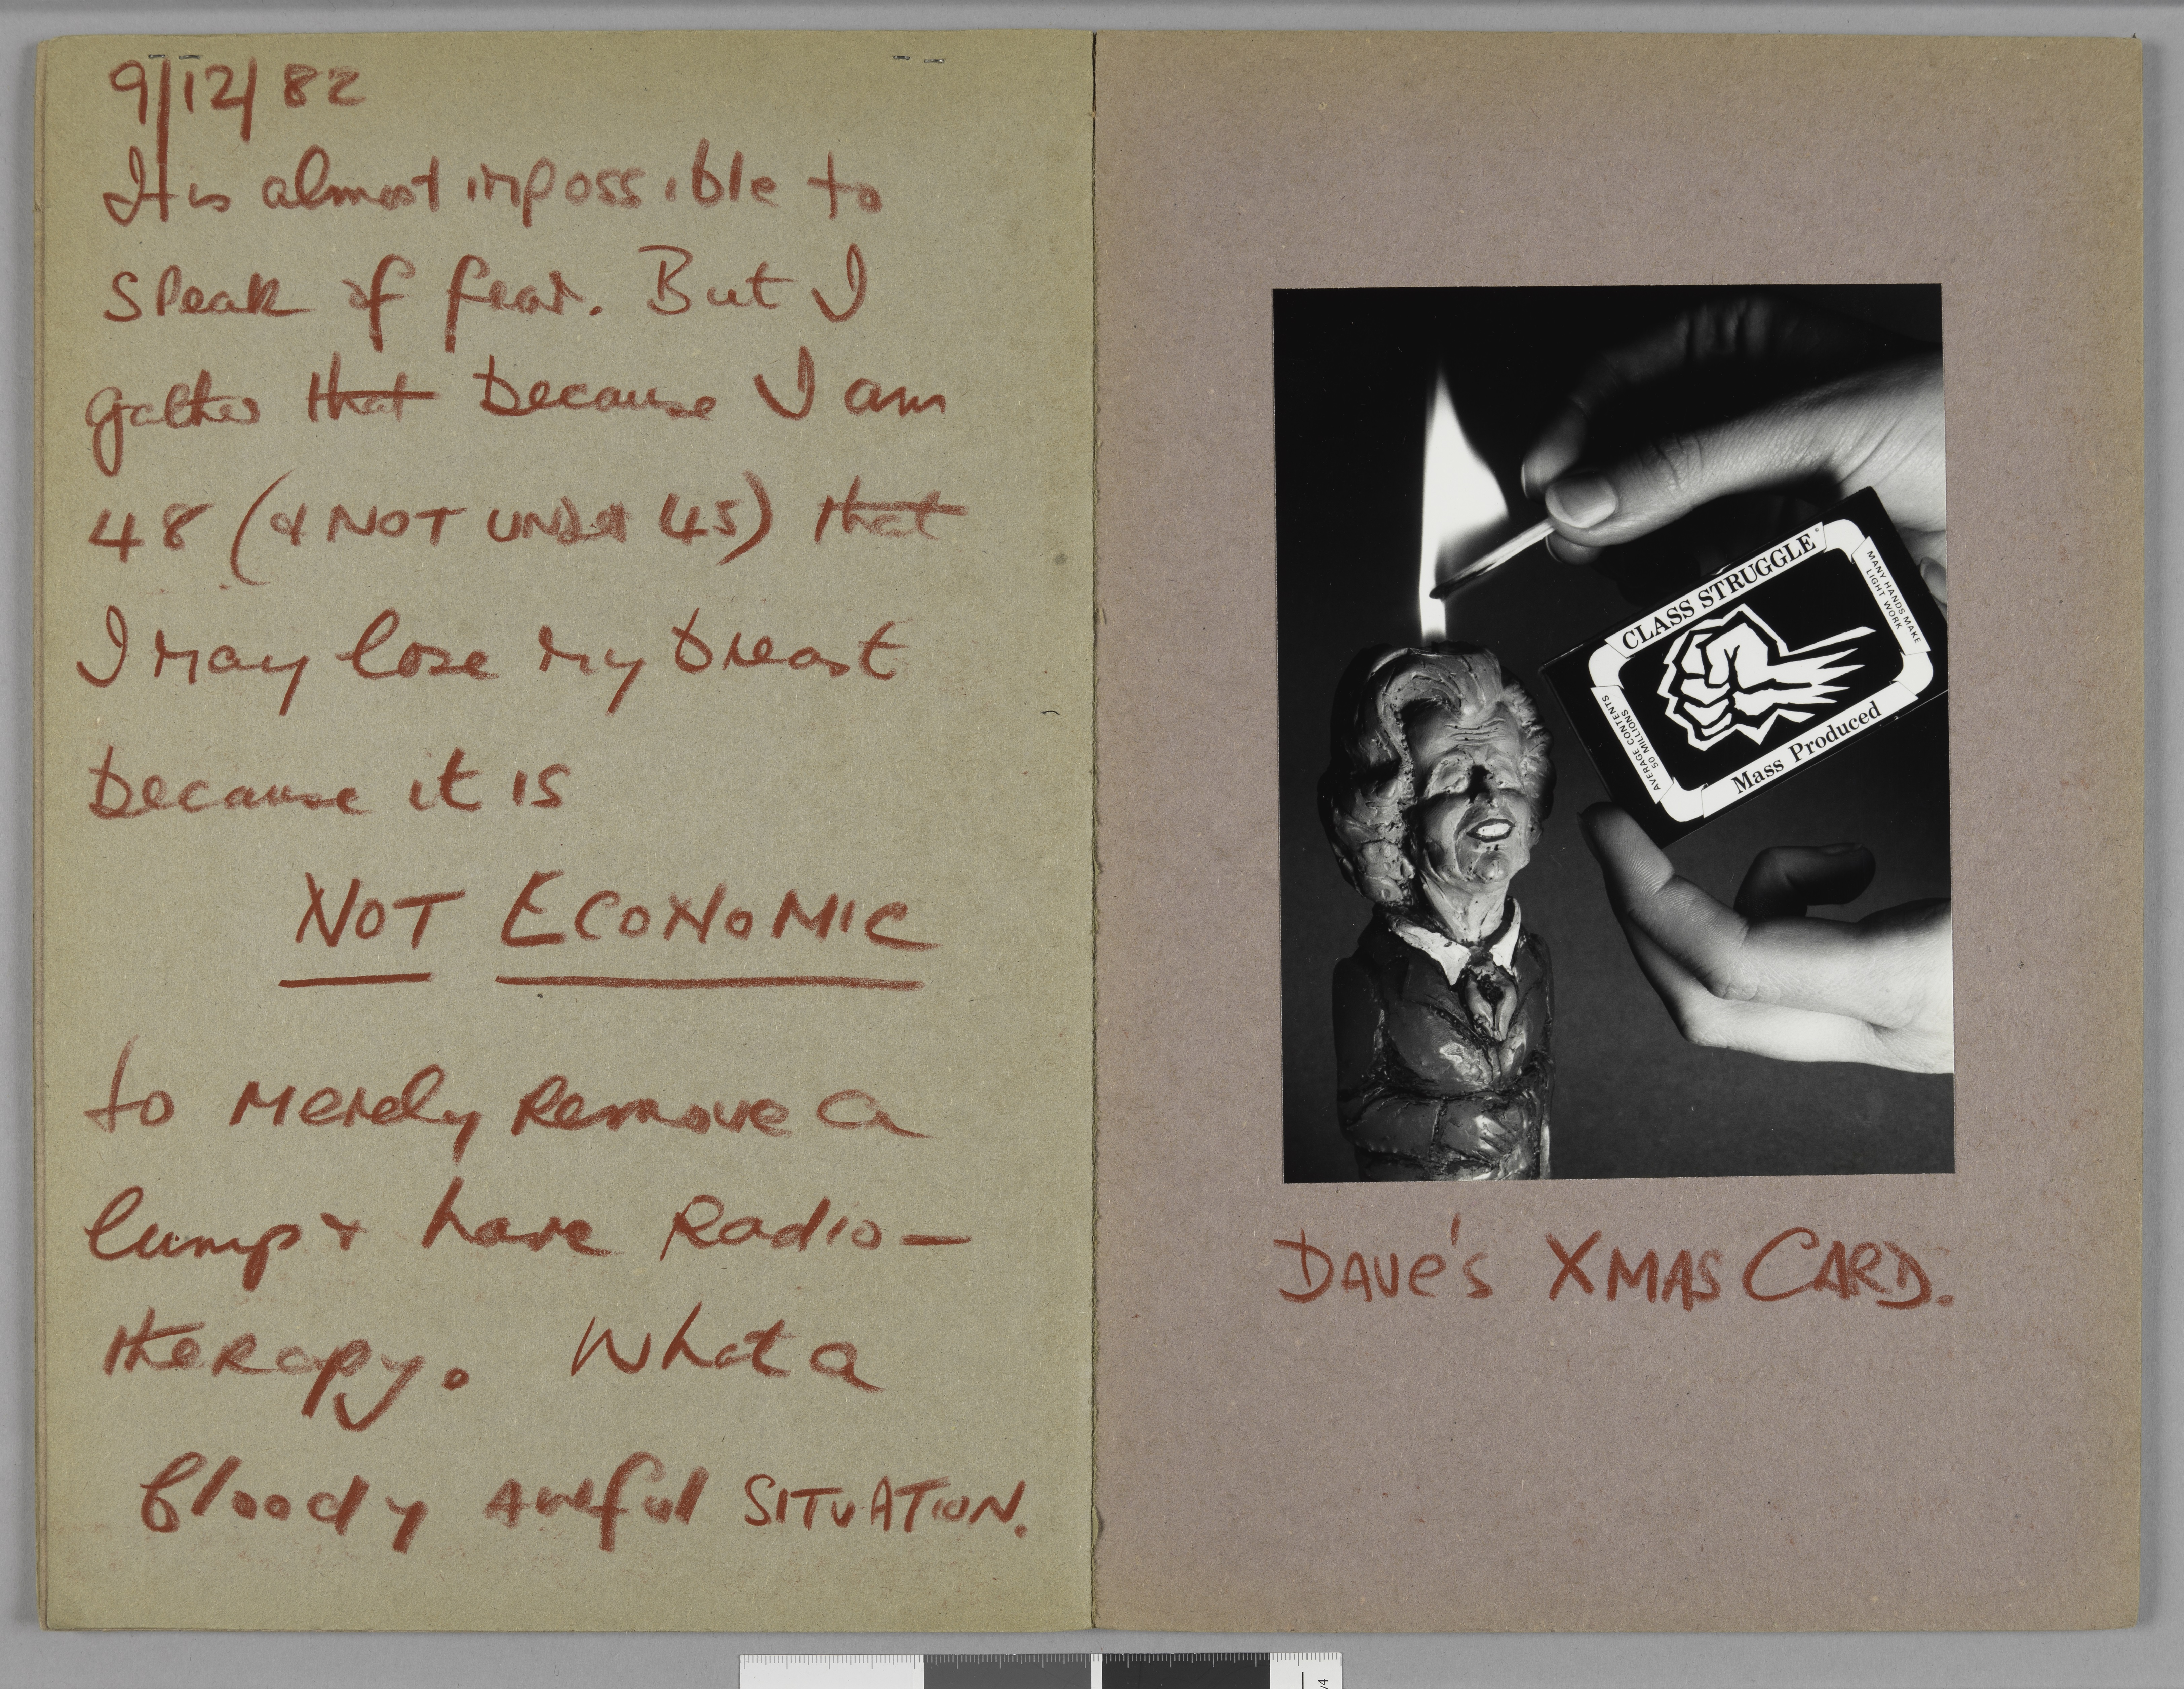 9/12/82
It is almost impossible to
speak of fear. But I
gather that because I am
48 (& NOT UNDER 45) that
I may lose my breast
because it is
NOT ECONOMIC
to merely remove a
lump & have Radio-
therapy. What a
bloody awful SITUATION.
CLASS STRUGGLE
MANY HANDS MAKE
LIGHT WORK
AVERAGE CONTENTS
50 MILLIONS
Mass Produced
DAVE'S XMAS CARD.